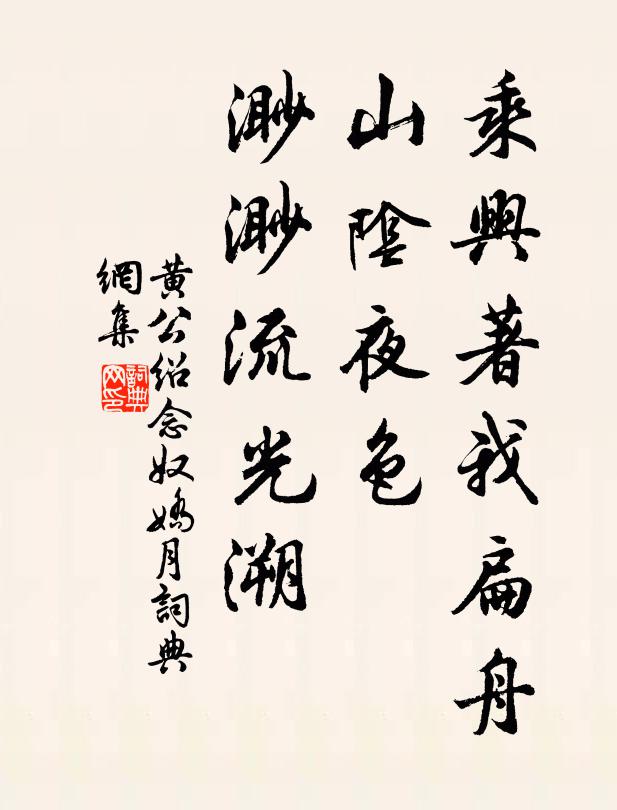 乘興著我扁舟
山陰夜色
渺渺流光溯
黄公绍念奴嬌月詞典
網集
詞典網印